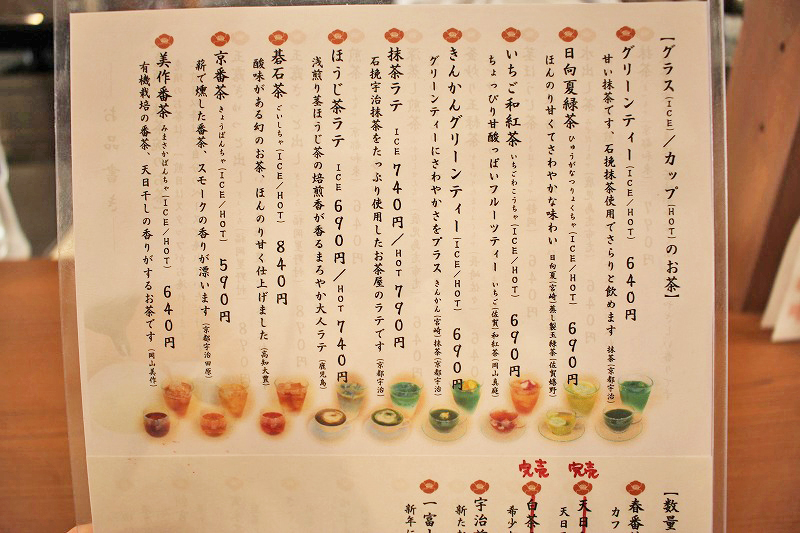 【グラス(ICE)／カップ(HOT)のお茶】
グリーンティー(ICE/HOT) 640円
甘い抹茶です、石挽抹茶使用でさらりと飲めます 抹茶(京都宇治)
日向夏緑茶 ひゅうがなつりょくちゃ(ICE/HOT) 690円
ほんのり甘くてさわやかな味わい 日向夏(宮崎)蒸し製玉緑茶(佐賀嬉野)
いちご和紅茶 いちごわこうちゃ(ICE/HOT) 690円
ちょっぴり甘酸っぱいフルーツティー いちご(佐賀)和紅茶(岡山真庭)
きんかんグリーンティー(ICE/HOT) 690円
グリーンティーにさわやかさをプラス きんかん(宮崎)抹茶(京都宇治)
抹茶ラテ ICE 740円／HOT 790円
石挽宇治抹茶をたっぷり使用したお茶屋のラテです(京都宇治)
ほうじ茶ラテ ICE 690円／HOT 740円
浅煎り茎ほうじ茶の焙煎香が香るまろやか大人ラテ(鹿児島)
碁石茶 ごいしちゃ(ICE/HOT) 840円
酸味がある幻のお茶、ほんのり甘く仕上げました(高知大豊)
京番茶 きょうばんちゃ(ICE/HOT) 590円
薪で燻した番茶、スモークの香りが漂います(京都宇治田原)
美作番茶 みまさかばんちゃ(ICE/HOT) 640円
有機栽培の番茶、天日干しの香りがするお茶です(岡山美作)
【数量
春番
カフ
完売
天日
天日
完売
白茶
希少
宇治
新た
一富
新年に